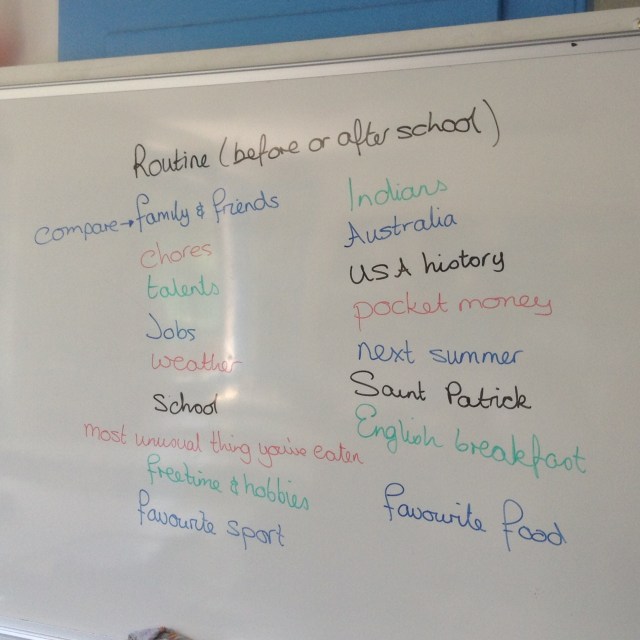 Routine (before or after school)
compare→family & friends
chores
talents
Jobs
weather
School
most unusual thing you've eaten
freetime & hobbies
favourite sport
Indians
Australia
USA history
pocket money
next summer
Saint Patrick
English breakfast
favourite food